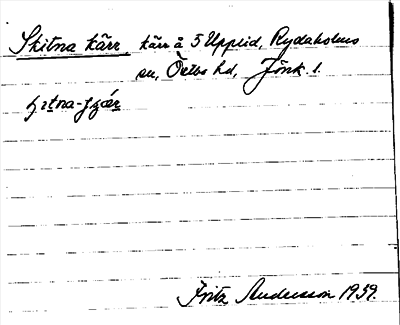 Skitna kärr, kärr å 5 Upplid, Rydaholms
sn, Östbo hd, Jönk. l.
Fritz Andersson 1939.